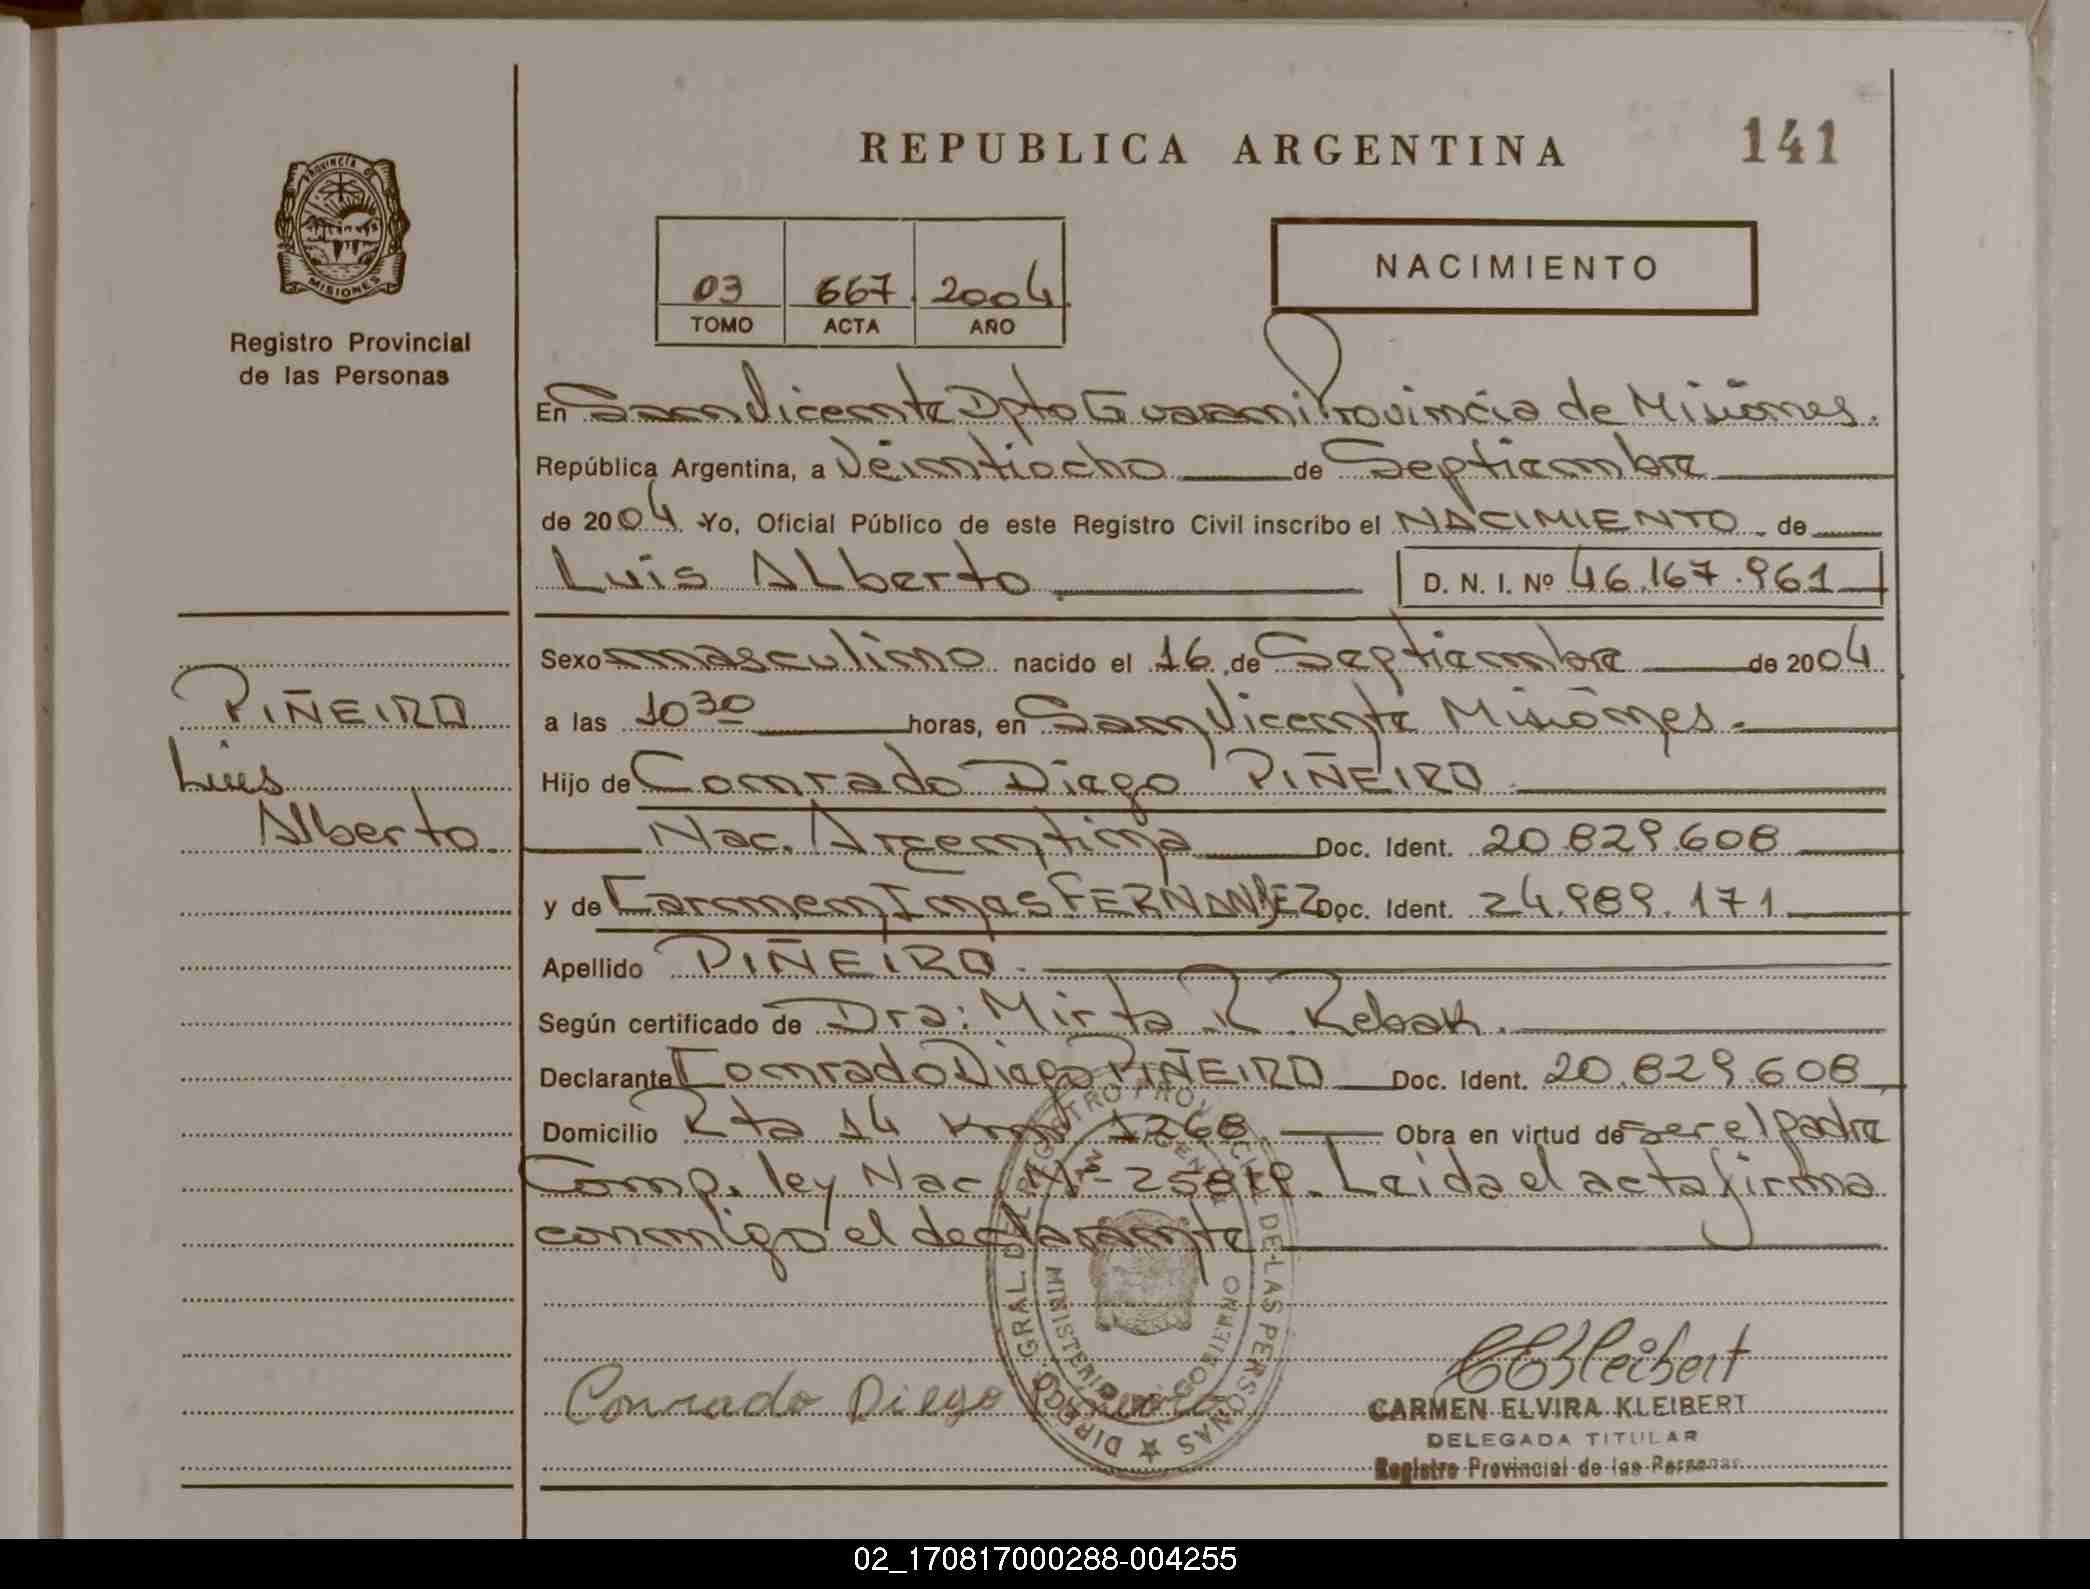 REPUBLICA ARGENTINA
141
PROVINCIA DE
MISIONES
Registro Provincial
de las Personas
03 667 2004
TOMO ACTA AÑO
NACIMIENTO
En San Vicente Dpto Guarani Provincia de Misiones.
República Argentina, a Veintiocho de Septiembre
de 2004 Yo, Oficial Público de este Registro Civil inscribo el NACIMIENTO de
Luis Alberto D. N. I. Nº 46.167.961
Sexo masculino nacido el 16 de Septiembre de 2004
PIÑEIRO
a las 10 30 horas, en San Vicente Misiones.
Luis
Hijo de Conrado Diego PIÑEIRO
Alberto.
Nac. Argentina Doc. Ident. 20.829.608
y de Carmen Ines FERNANDEZ Doc. Ident. 24.989.171
Apellido PIÑEIRO.
Según certificado de Dra: Mirta R. Rebak.
Declarante Conrado Diego PIÑEIRO Doc. Ident. 20.829.608
Domicilio Rta 14 Km 1268 Obra en virtud de ser el padre
Comp. ley Nac Nº- Leida el acta firma
conmigo el declarante
DIRECC. GRAL. DEL REGISTRO PROVINCIAL DE LAS PERSONAS
MINISTERIO DE GOBIERNO
Conrado Diego Piñeiro
CEKleibert
CARMEN ELVIRA KLEIBERT
DELEGADA TITULAR
Registro Provincial de las Personas
02_170817000288-004255